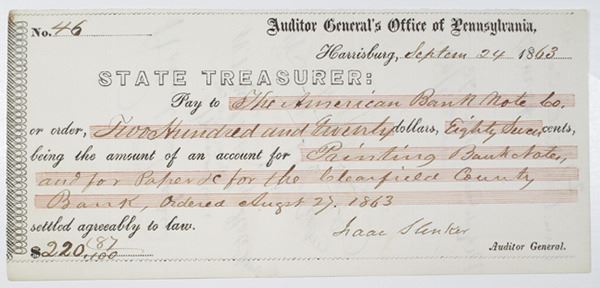 No. 46
Auditor General's Office of Pennsylvania,
Harrisburg, Septem 24 1863
STATE TREASURER:
Pay to The American Bank Note Co.
or order, Two Hundred and Twenty dollars, Eighty Seven cents,
being the amount of an account for Printing Bank Notes,
and for Paper &c for the Clearfield County
Bank, Ordered Augst 27. 1863
settled agreeably to law.
Isaac Slenker
$220 87/100
Auditor General.